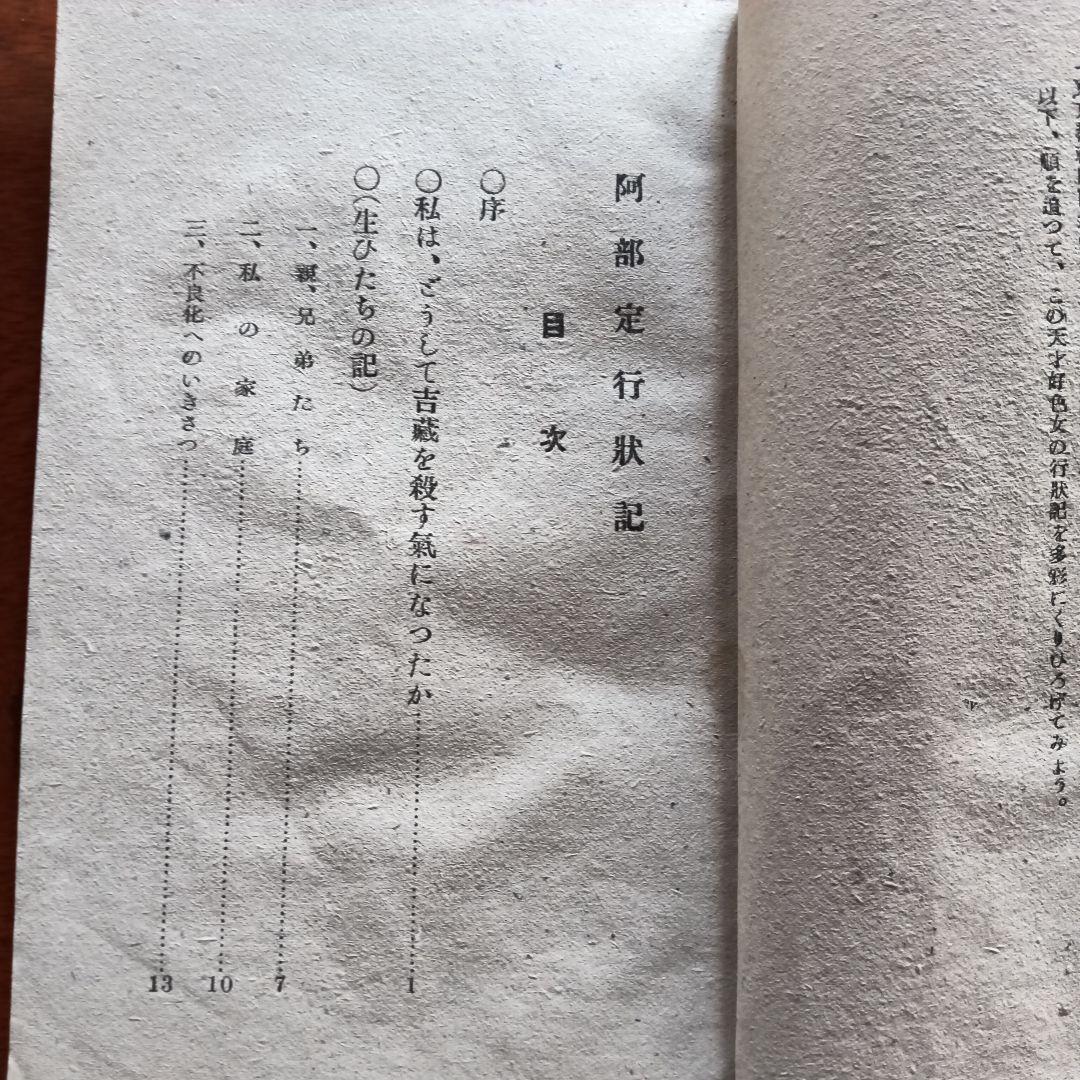 以下、順を追つて、この天才好色女の行狀記を多彩にくりひろげてみよう。
阿部定行狀記
目次
〇序
〇私は、どうして吉藏を殺す氣になつたか…………1
〇(生ひたちの記)
一、親、兄弟たち…………7
二、私の家庭…………10
三、不良化へのいきさつ…………13